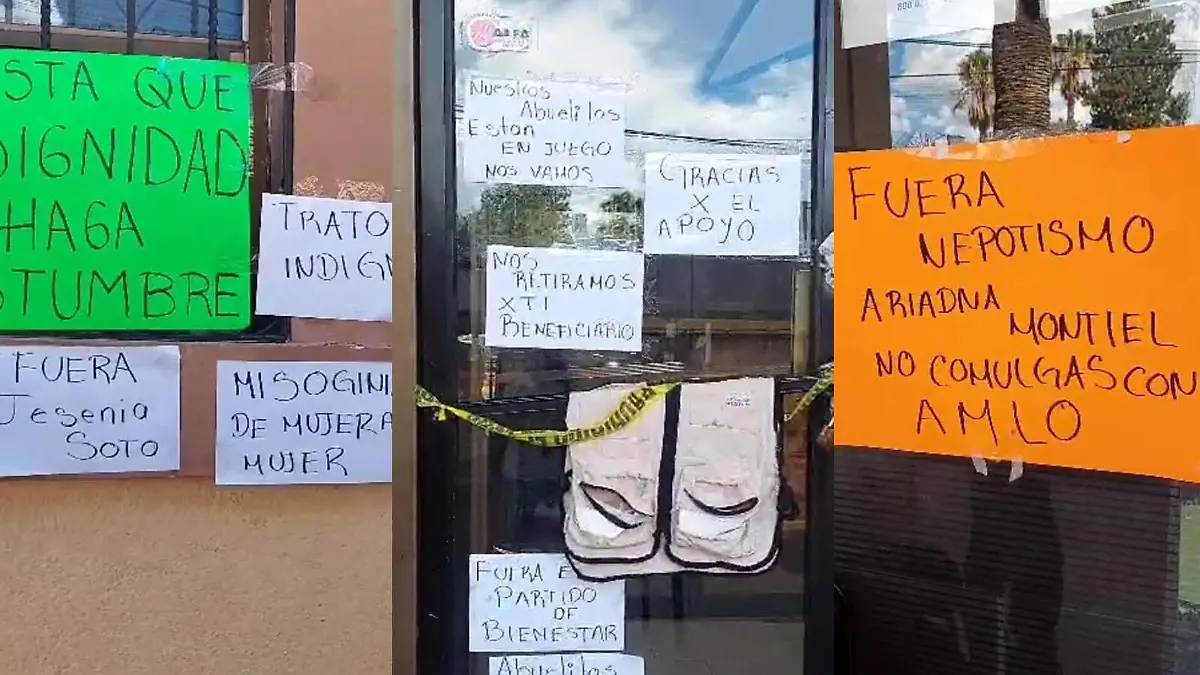 STA QUE
DIGNIDAD
HAGA
STUMBRE
TRATO
INDIGN
FUERA
Jesenia
SOTO
MISOGINI
DE MUJER A
MUJER
Nuestros
Abuelitos
Estan
EN JUEGO
NOS VAMOS
GRACIAS
X EL
APOYO
NOS
RETIRAMOS
X TI
BENEFICIARIO
FUERA E
PARTIDO
DE
BIENESTAR
Abuelitos
FUERA
NEPOTISMO
ARIADNA
MONTIEL
NO COMULGAS CON
AMLO